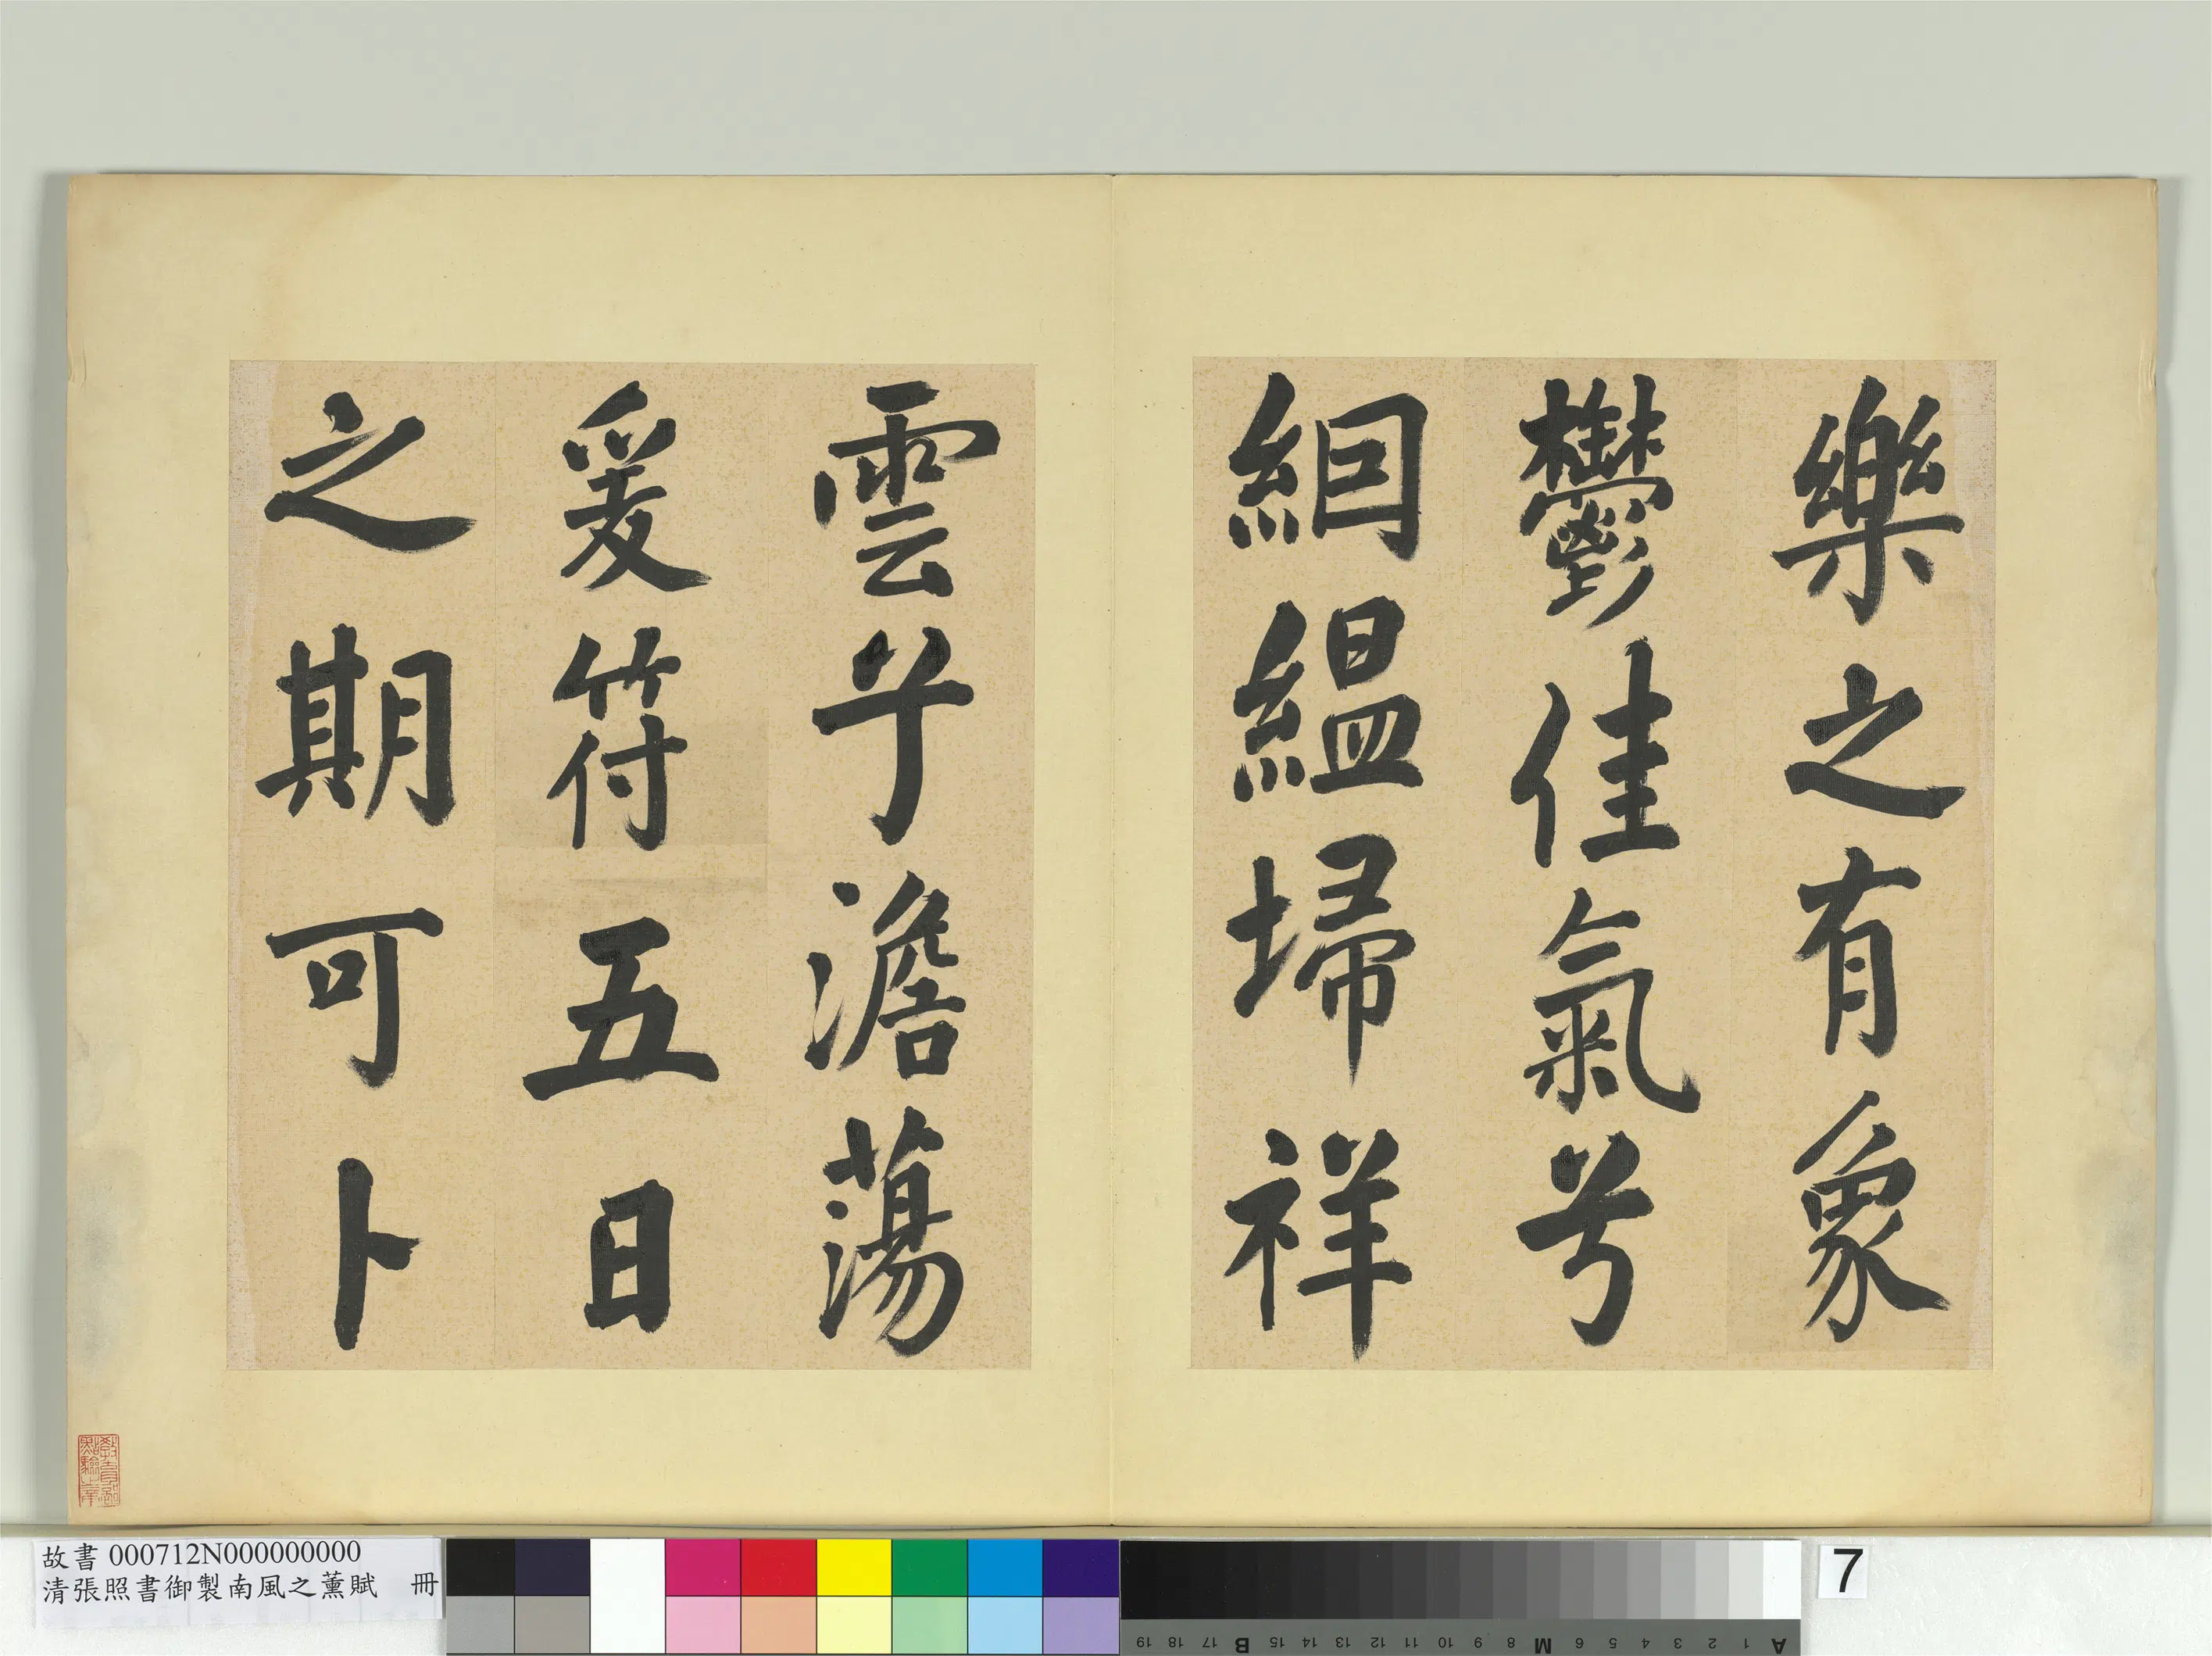 樂之有象
鬱佳氣兮
絪縕埽祥
雲乎澹蕩
爰符五日
之期可卜
故書 000712N000000000
清張照書御製南風之薰賦 冊
7
A 1 2 3 4 5 6 M 8 9 10 11 12 13 14 15 B 17 18 19